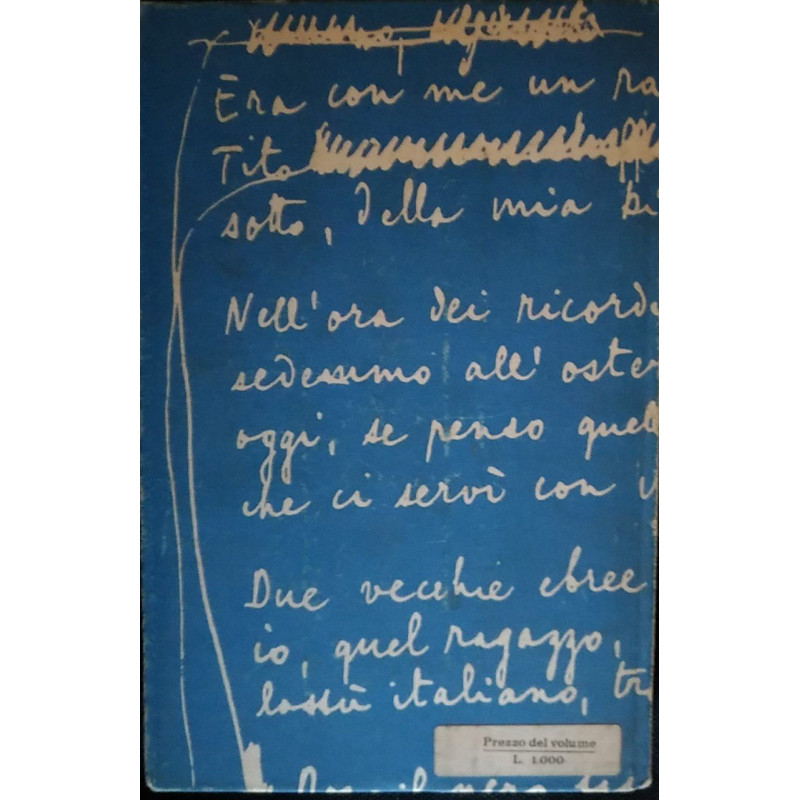 Era con me un ra
Tito
sotto, della mia bi
Nell'ora dei ricordi
sedemmo all'oste
oggi, se penso quel
che ci servì con
Due vecchie ebree
io, quel ragazzo,
lassù italiano, tr
Prezzo del volume
L. 1.000